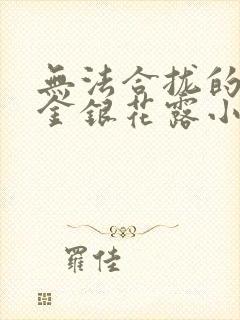 無法合拢的
金銀花露小
羅佳